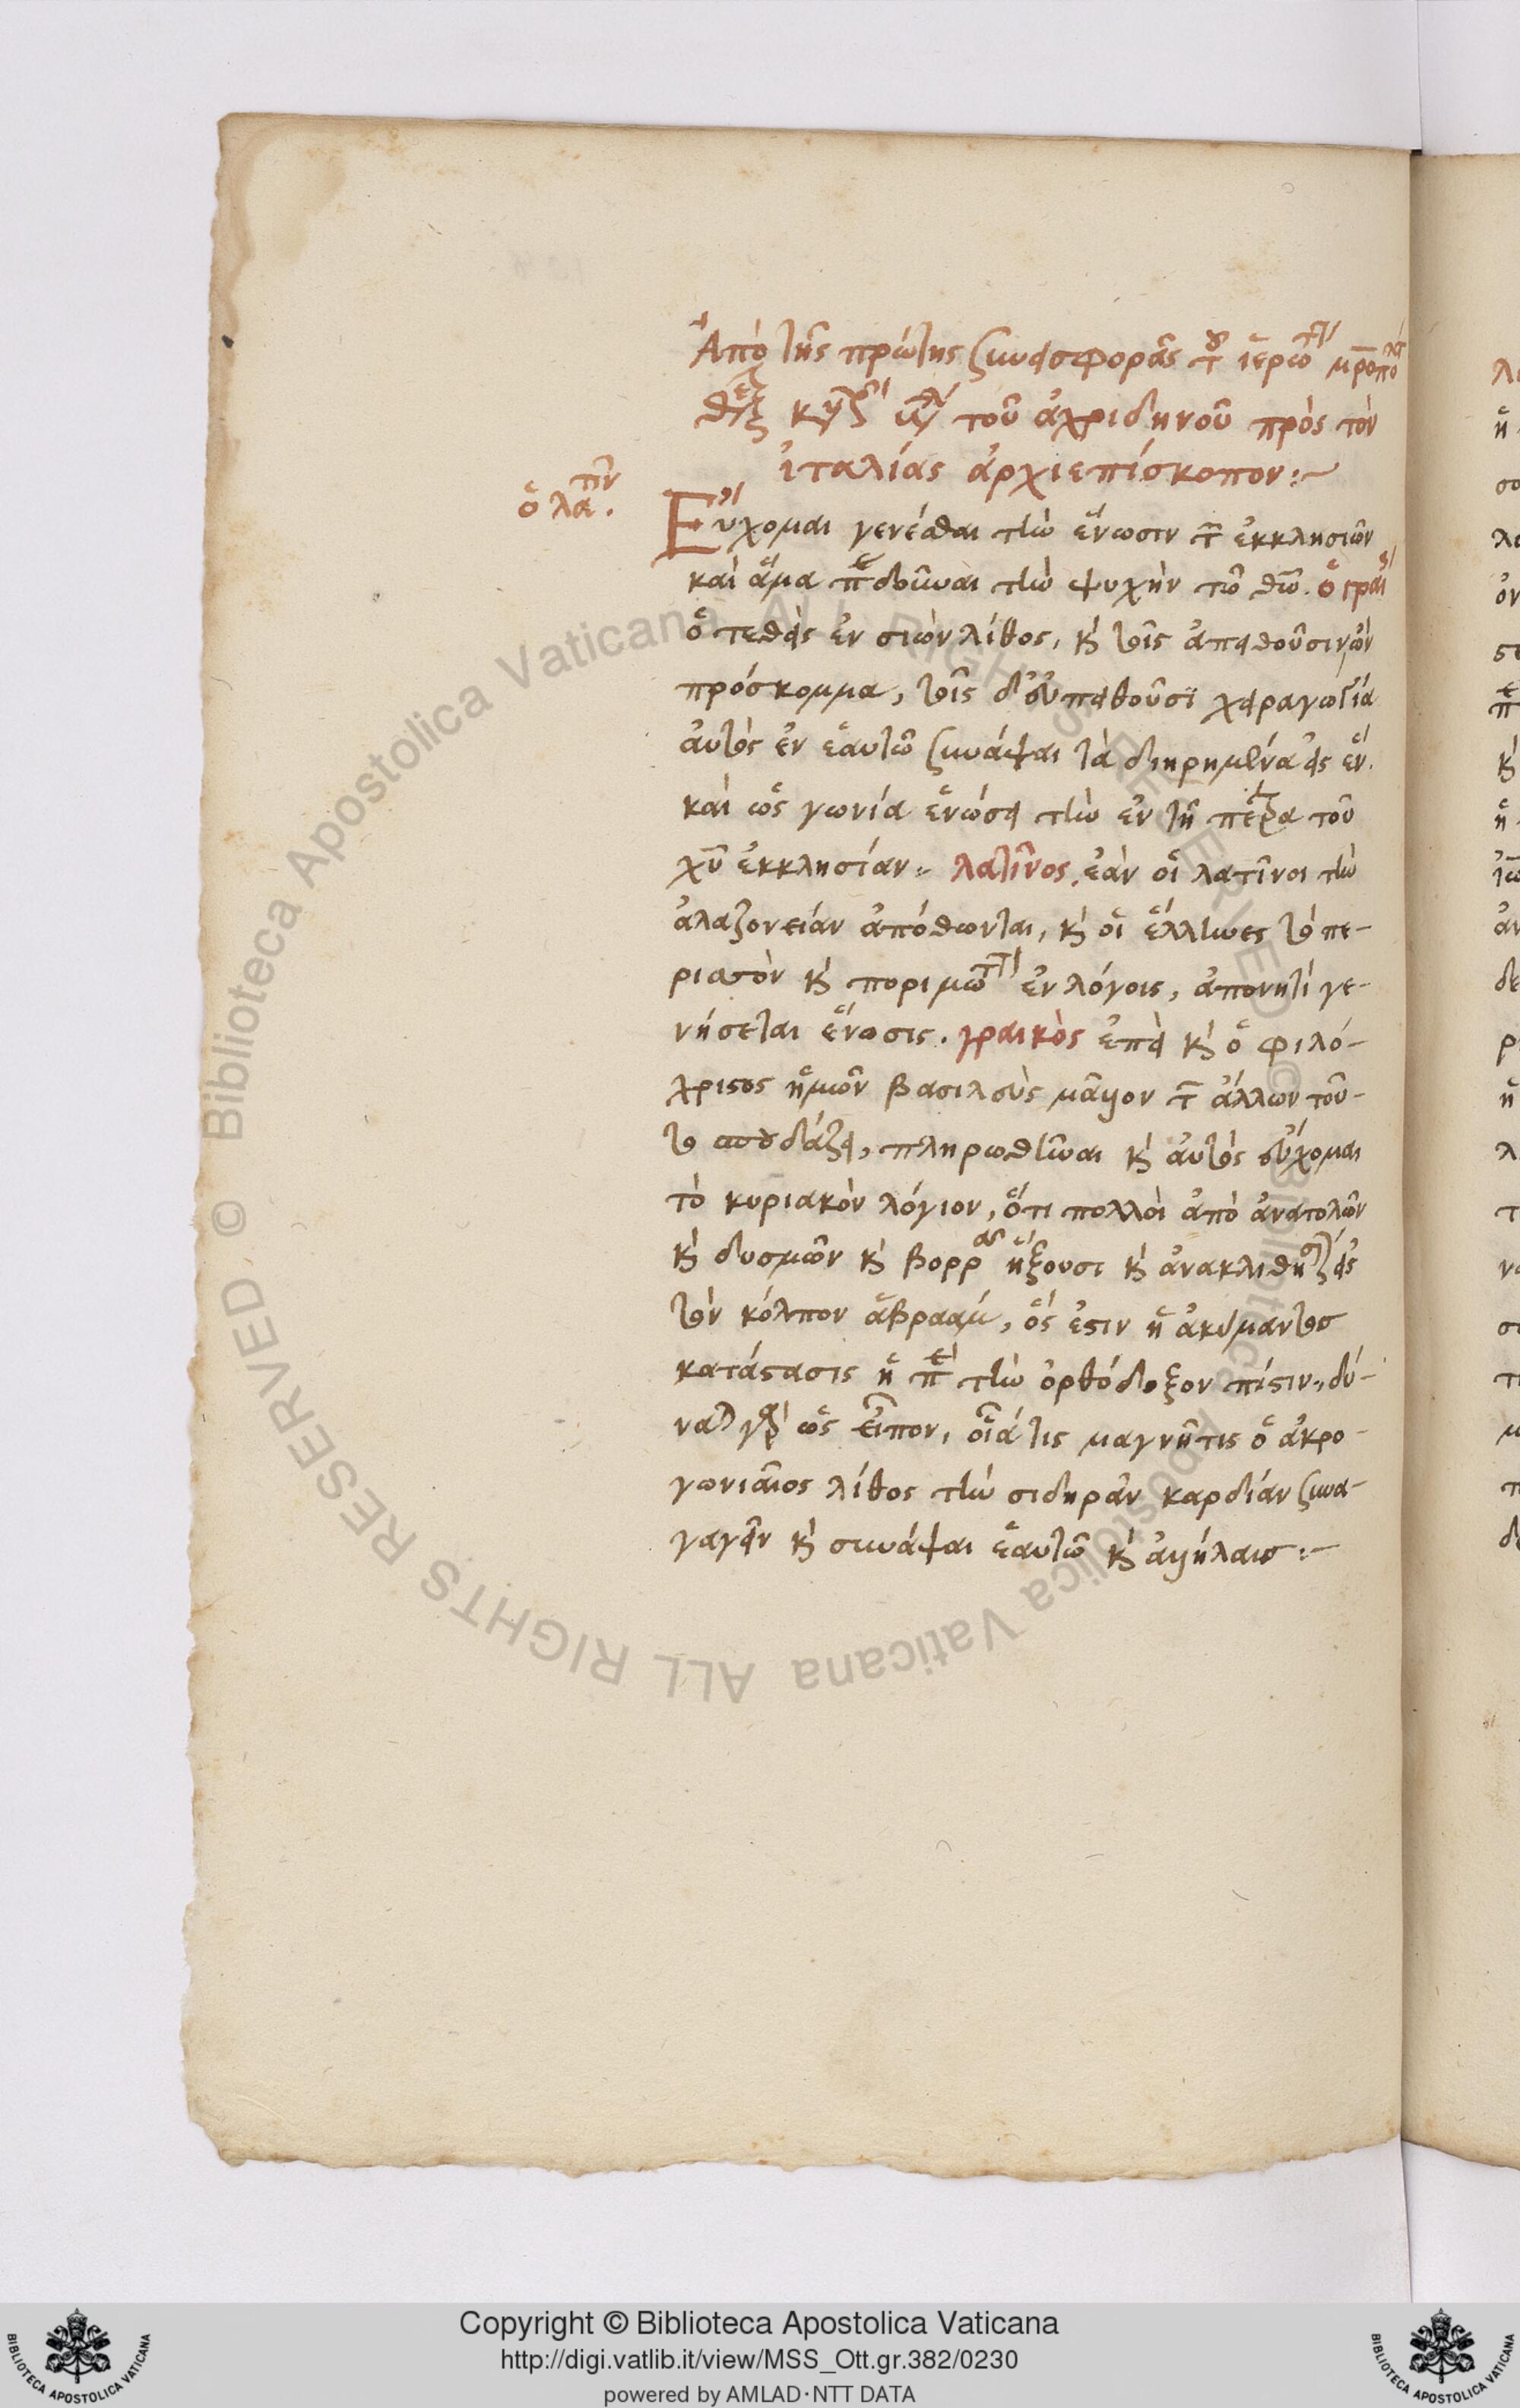 Ἀπὸ τῆς πρώτης συνεισφορᾶς τοῦ ἱερωτ μροπολ
θεσ κυρ βασιλ τοῦ ἀχριδηνοῦ πρὸς τὸν
ἰταλίας ἀρχιεπίσκοπον:~
ὁ λατῖν.
Εὔχομαι γενέσθαι τὴν ἕνωσιν τῶν ἐκκλησιῶν
καὶ ἅμα παραδοῦναι τὴν ψυχὴν τῶ θῶ. ὁ γραι
ὁ τεθεὶς ἐν σιὼν λίθος, κ τοῖς ἀπειθοῦσιν ὢν
πρόσκομμα, τοῖς δ' εὐπειθοῦσι χειραγωγία
αὐτὸς ἐν ἑαυτῶ συνάψαι τὰ διηρημένα εἰς ἕν.
καὶ ὡς γωνία ἑνώσει τὴν ἐν τῆ πέτρα τοῦ
χυ ἐκκλησίαν· λατῖνος. ἐὰν οἱ λατῖνοι τὴν
ἀλαζονείαν ἀπόθωνται, κ οἱ ἕλληνες τὸ πε-
ριττὸν κ πορισμωτ ἐν λόγοις, ἀπονητὶ γε-
νήσεται ἕνωσις. γραικὸς ἐπεὶ κ ὁ φιλό-
χριστος ἡμῶν βασιλεὺς μᾶλλον τῶν ἄλλων τοῦ-
το σπουδάζει, πληρωθῆναι κ αὐτὸς εὔχομαι
τὸ κυριακὸν λόγιον, ὅτι πολλοὶ ἀπὸ ἀνατολῶν
κ δυσμῶν κ βορρᾶ ἥξουσι κ ἀνακλιθήσ εἰς
τὸν κόλπον ἀβραάμ, ὅς ἐστιν ἡ ἀκύμαντος
κατάστασις ἡ περὶ τὴν ὀρθόδοξον πίστιν· δύ-
ναται γὰρ ὡς εἶπον, οἷά τις μαγνῆτις ὁ ἀκρο-
γωνιαῖος λίθος τὴν σιδηρὰν καρδίαν συνα-
γαγεῖν κ συνάψαι ἑαυτῶ κ ἀλλήλαις:~
Copyright © Biblioteca Apostolica Vaticana
http://digi.vatlib.it/view/MSS_Ott.gr.382/0230
powered by AMLAD·NTT DATA
BIBLIOTECA APOSTOLICA VATICANA
BIBLIOTECA APOSTOLICA VATICANA
© Biblioteca Apostolica Vaticana ALL RIGHTS RESERVED © Biblioteca Apostolica Vaticana ALL RIGHTS RESERVED